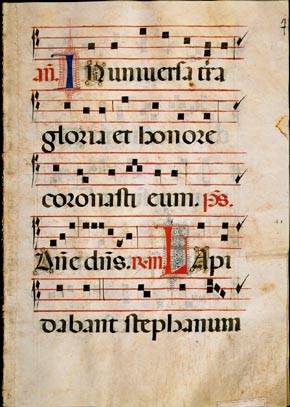 añ. In universa t̃ra
gloria et honore
coronasti eum. p̃s.
Dñe dñs. Lapi
dabant stephanum